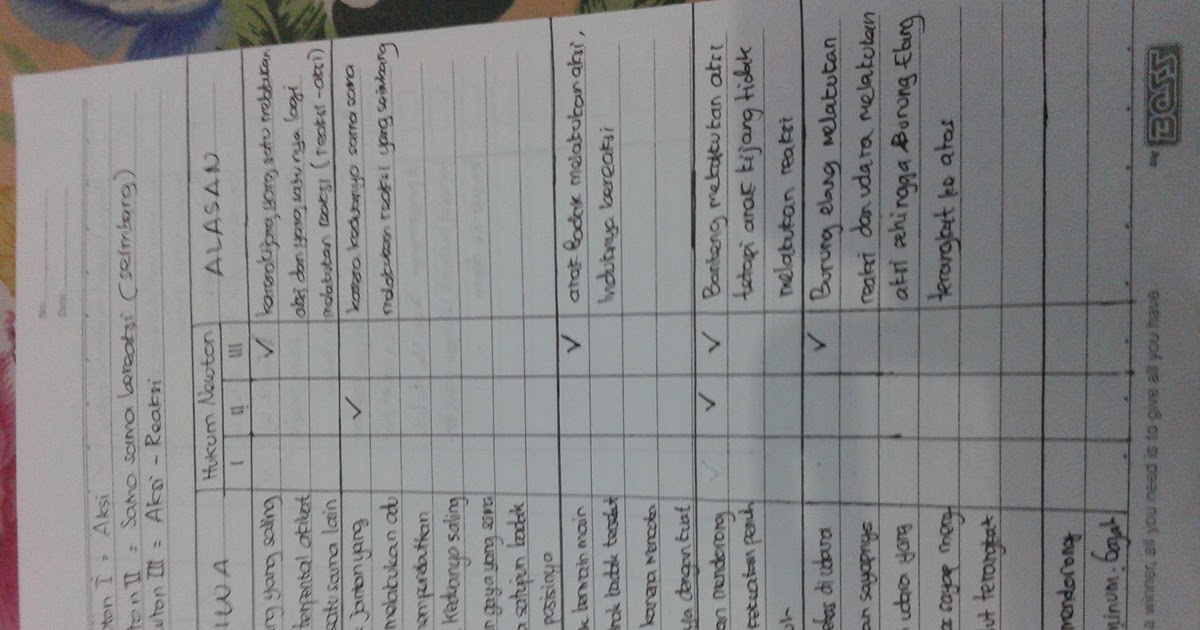 No.
Date.
ton I : Aksi
ton II : Sama sama bereaksi (seimbang)
wton III = Aksi - Reaksi
Hukum Newton
ALASAN
I
II
III
ng yang saling
terpental akibat
satu sama lain
✓
karena kijang yang satu melakukan
aksi dan yang satunya lagi
melakukan reaksi (reaksi-aksi)
jantan yang
melakukan adu
mempertahankan
Keduanya saling
n gaya yang sama
satupun badak
posisinya
✓
karena keduanya sama sama
melakukan reaksi yang seimbang
k bermain main
nak badak tersebut
karena mencoba
dengan kuat
✓
anak Badak melakukan aksi,
Induknya bereaksi
an mendorong
kekuatan penuh
uh
✓
✓
Banteng melakukan aksi
tetapi anak kijang tidak
melakukan reaksi
bebas di udara
an sayapnya
udara yang
sayap meng
ut terangkat
✓
Burung elang melakukan
reaksi dan udara melakukan
aksi sehingga Burung Elang
terangkat ke atas
mendorong
minum. Gajah
a winner, all you need is to give all you have
BOSS